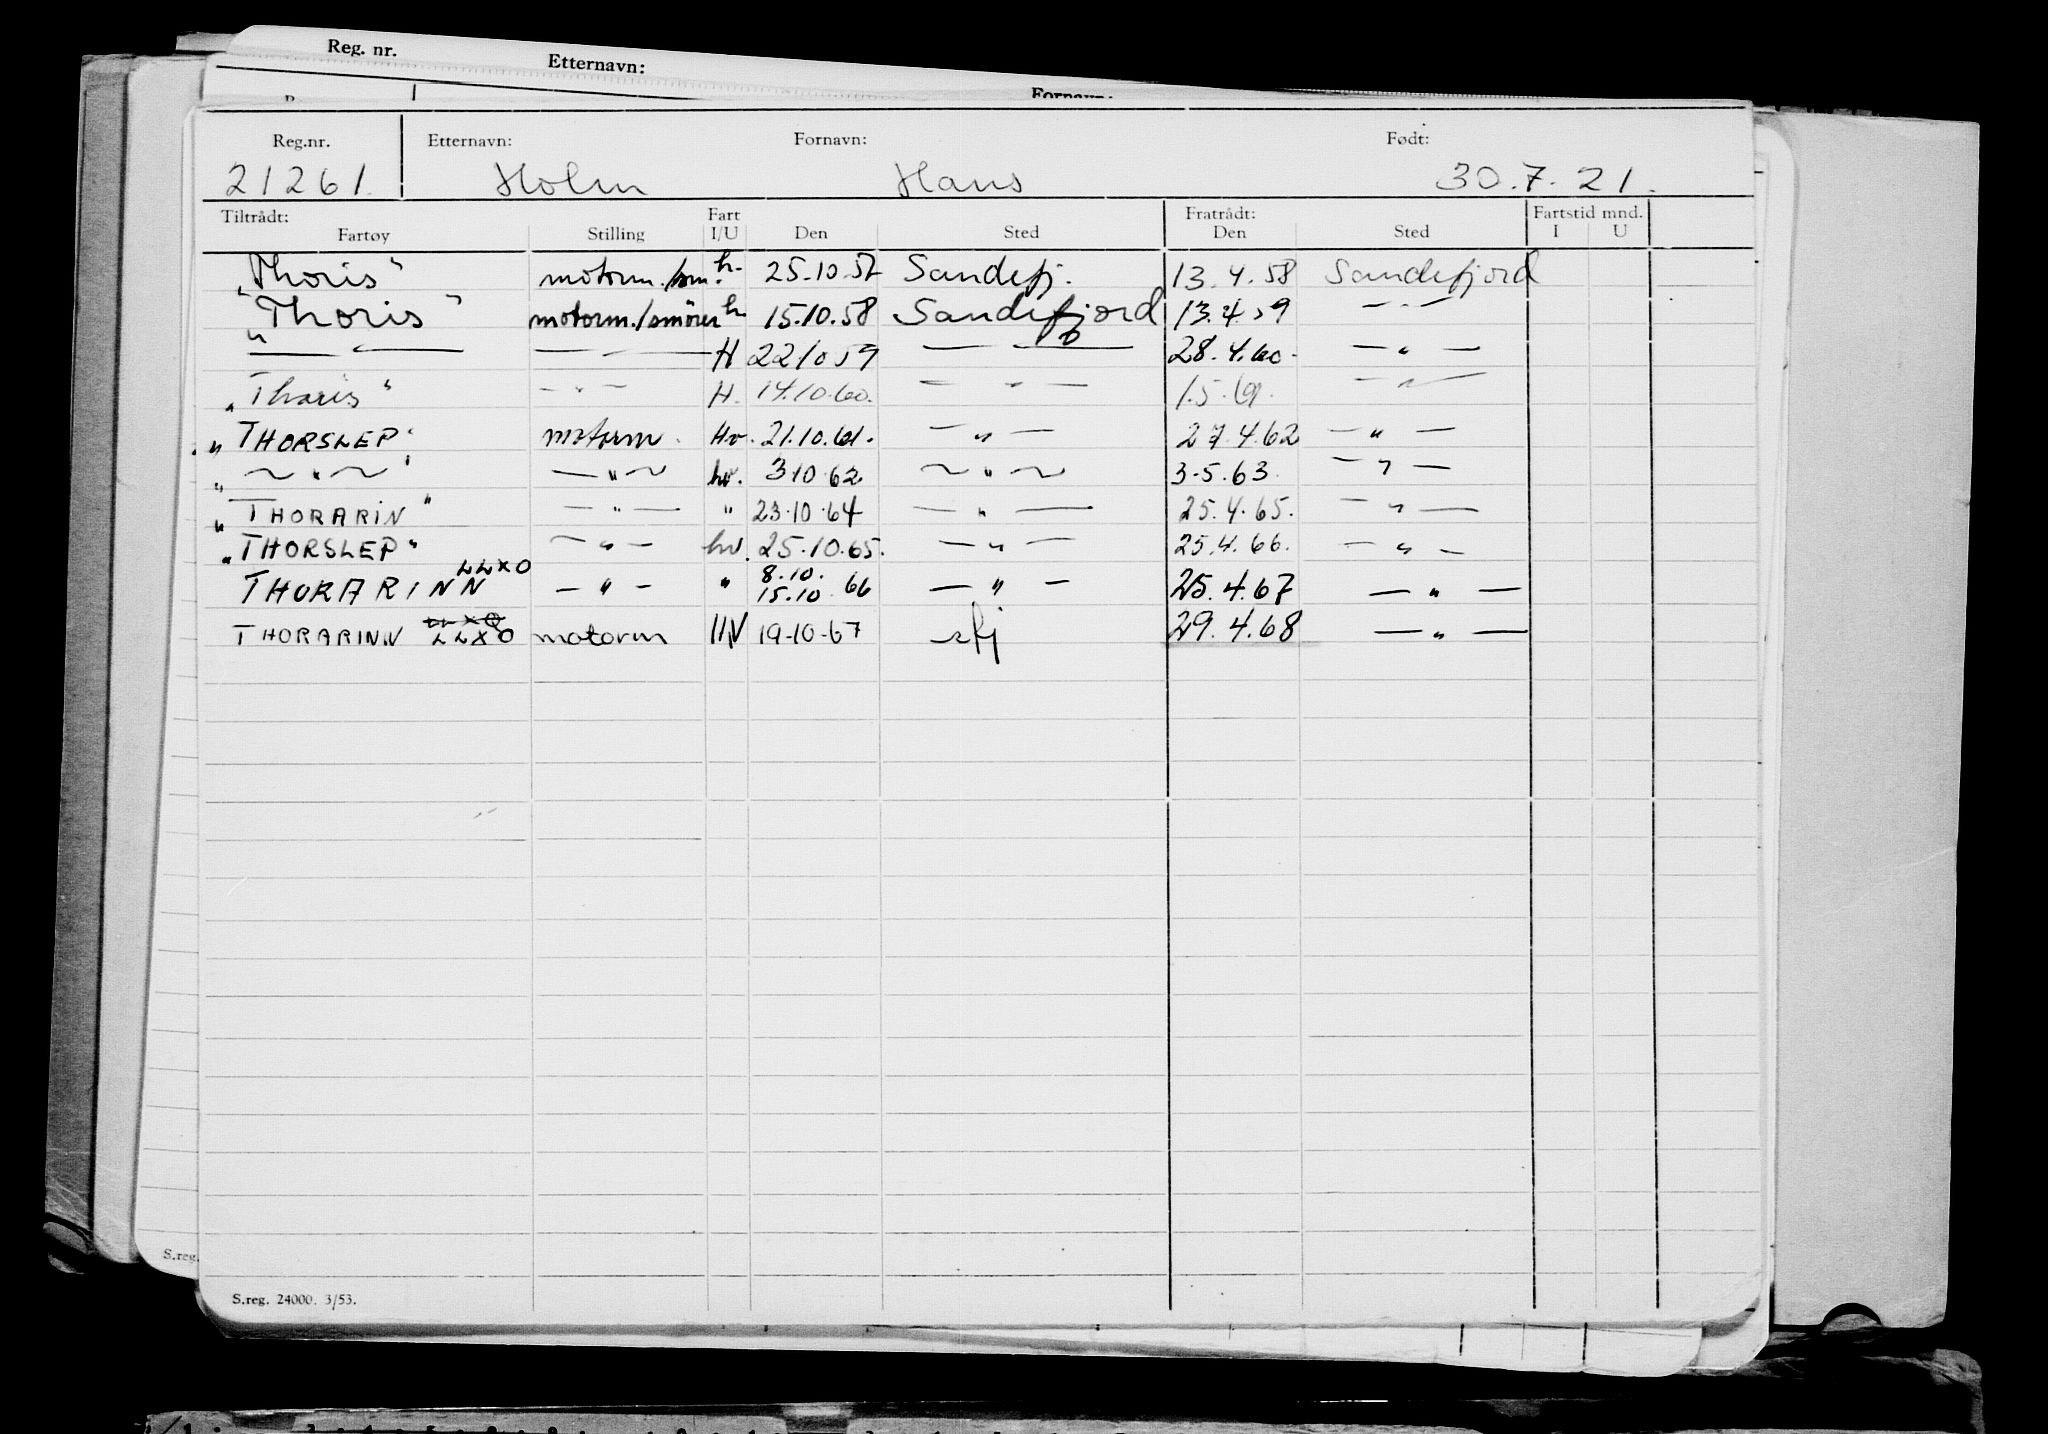 Reg. nr. Etternavn:
Fornavn:
Reg.nr. Etternavn: Fornavn: Født:
21261. Holm Hans 30.7.21.
Tiltrådt: Fart Fratrådt: Fartstid mnd.
Fartøy Stilling I/U Den Sted Den Sted I U
„Thoris" motorm./sm. h. 25.10.57 Sandefj. 13.4.58 Sandefjord
"Thoris" motorm./smörer h 15.10.58 Sandefjord 13.4.59 — " —
— " — — — H 22 10 59 — — 28.4.60. — " —
„Thoris" — " — H. 14.10.60. — " — 1.5.61. — " —
„THORSLEP" motorm. Hv. 21.10.61. — " — 27.4.62 — " —
„ — " — " — " — hv. 3 10 62 — " — 3.5.63. — " —
„THORARIN" — " — " 23.10.64 — " — 25.4.65. — " —
„THORSLEP" — " — hv. 25.10.65. — " — 25.4.66. — " —
LLXO 8.10.
THORARINN — " — " 15.10 66 — " — 25.4.67 — " —
THORARINN LLXO motorm UV 19-10-67 sfj 29.4.68 — " —
S.reg.
S.reg. 24000. 3/53.